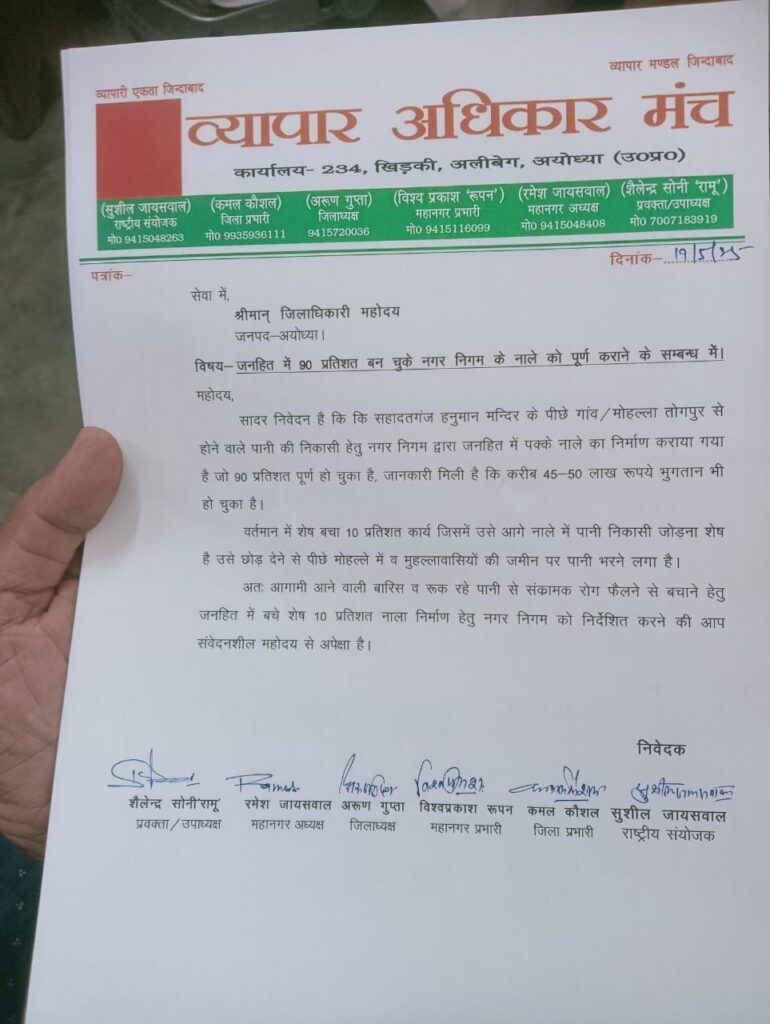 व्यापारी एकता जिन्दाबाद
व्यापार मण्डल जिन्दाबाद
व्यापार अधिकार मंच
कार्यालय- 234, खिड़की, अलीबेग, अयोध्या (उ0प्र0)
(सुशील जायसवाल) (कमल कौशल) (अरूण गुप्ता) (विश्व प्रकाश 'रूपन') (रमेश जायसवाल) (शैलेन्द्र सोनी 'रामू')
राष्ट्रीय संयोजक जिला प्रभारी जिलाध्यक्ष महानगर प्रभारी महानगर अध्यक्ष प्रवक्ता/उपाध्यक्ष
मो0 9415048263 मो0 9935936111 9415720036 मो0 9415116099 मो0 9415048408 मो0 7007183919
पत्रांक-
दिनांक- 19/5/25
सेवा में,
श्रीमान् जिलाधिकारी महोदय
जनपद–अयोध्या।
विषय– जनहित में 90 प्रतिशत बन चुके नगर निगम के नाले को पूर्ण कराने के सम्बन्ध में।
महोदय,
सादर निवेदन है कि कि सहादतगंज हनुमान मन्दिर के पीछे गांव/मोहल्ला तोगपुर से
होने वाले पानी की निकासी हेतु नगर निगम द्वारा जनहित में पक्के नाले का निर्माण कराया गया
है जो 90 प्रतिशत पूर्ण हो चुका है, जानकारी मिली है कि करीब 45–50 लाख रूपये भुगतान भी
हो चुका है।
वर्तमान में शेष बचा 10 प्रतिशत कार्य जिसमें उसे आगे नाले में पानी निकासी जोड़ना शेष
है उसे छोड़ देने से पीछे मोहल्ले में व मुहल्लावासियों की जमीन पर पानी भरने लगा है।
अतः आगामी आने वाली बारिस व रूक रहे पानी से संकामक रोग फैलने से बचाने हेतु
जनहित में बचे शेष 10 प्रतिशत नाला निर्माण हेतु नगर निगम को निर्देशित करने की आप
संवेदनशील महोदय से अपेक्षा है।
निवेदक
शैलेन्द्र सोनी'रामू' रमेश जायसवाल अरूण गुप्ता विश्वप्रकाश रूपन कमल कौशल सुशील जायसवाल
प्रवक्ता/उपाध्यक्ष महानगर अध्यक्ष जिलाध्यक्ष महानगर प्रभारी जिला प्रभारी राष्ट्रीय संयोजक